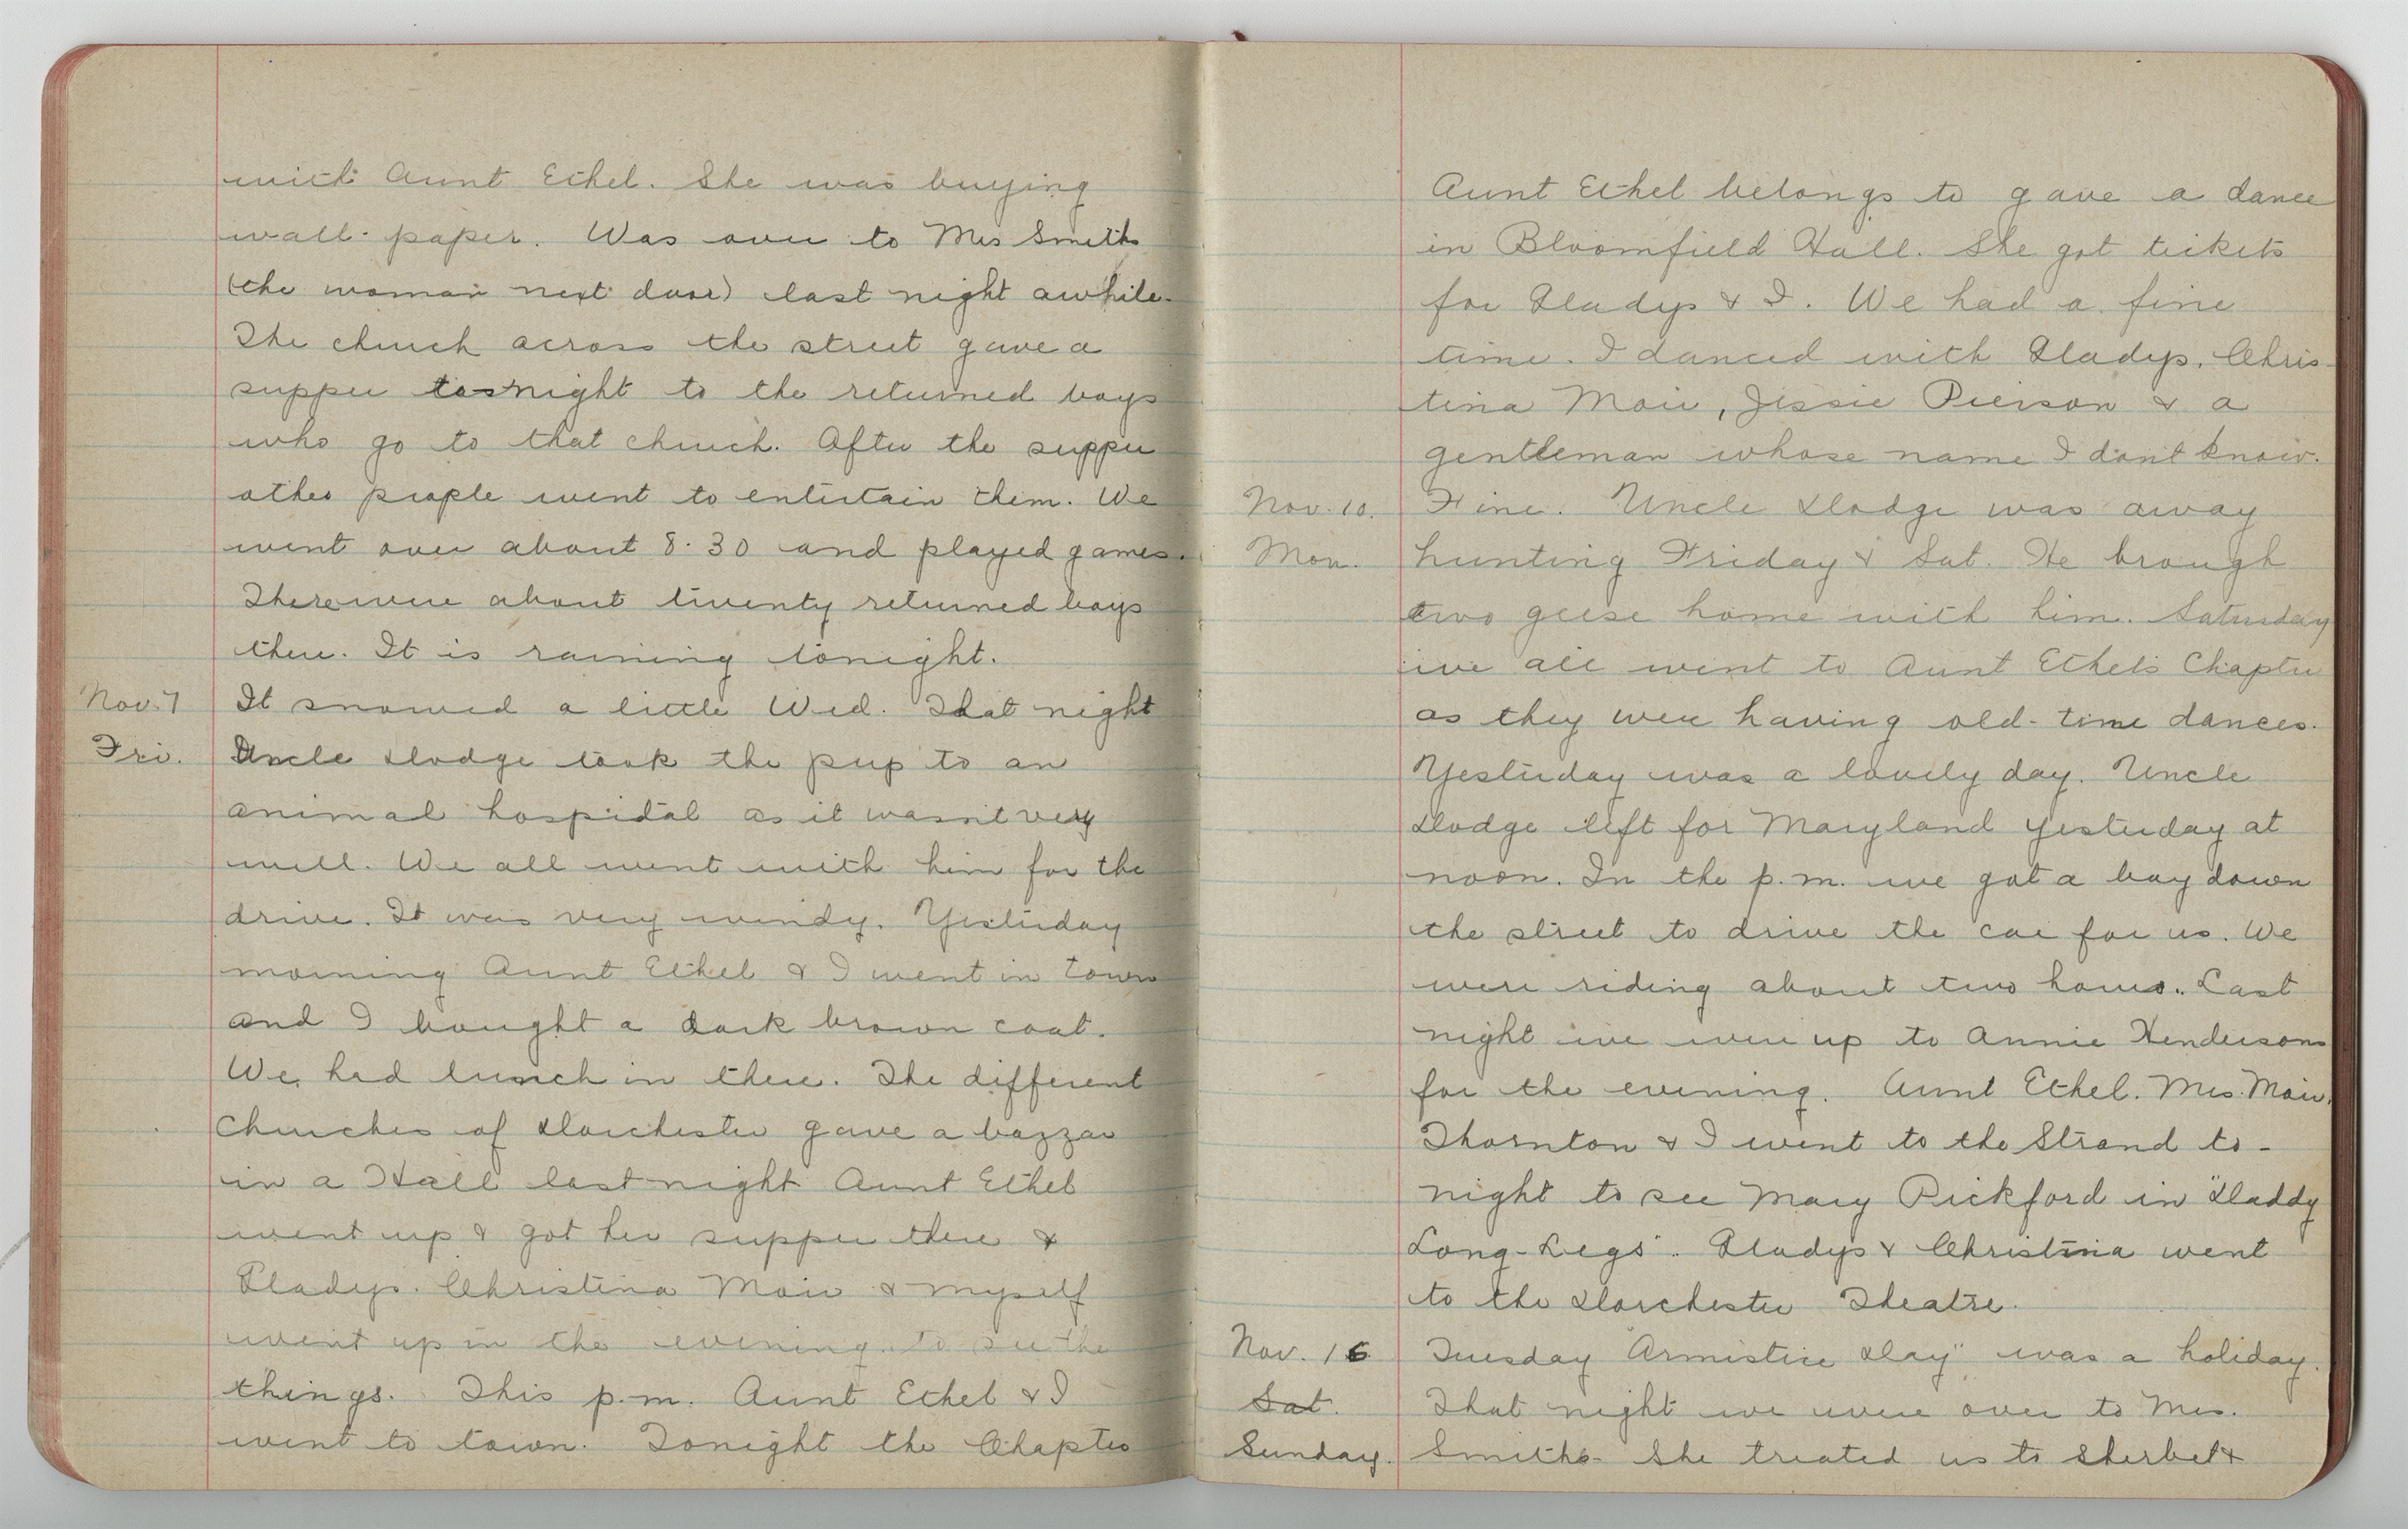 with Aunt Ethel. She was buying
wall-paper. Was over to Mrs Smiths
(the woman next door) last night awhile.
The church across the street gave a
supper tonight to the returned boys
who go to that church. After the supper
other people went to entertain them. We
went over about 8.30 and played games.
There were about twenty returned boys
there. It is raining tonight.
Nov. 7 It snowed a little Wed. That night
Fri. Uncle Dodge took the pup to an
animal hospital as it wasn't very
well. We all went with him for the
drive. It was very windy. Yesterday
morning Aunt Ethel & I went in town
and I bought a dark brown coat.
We had lunch in there. The different
churches of Dorchester gave a bazzar
in a Hall last night Aunt Ethel
went up & got her supper there &
Gladys. Christina Moir & myself
went up in the evening to see the
things. This p.m. Aunt Ethel & I
went to town. Tonight the Chapter
Aunt Ethel belongs to gave a dance
in Bloomfield Hall. She got tickets
for Gladys & I. We had a fine
time. I danced with Gladys, Chris-
tina Moir, Jessie Pierson & a
gentleman whose name I don't know.
Nov. 10. Fine. Uncle Dodge was away
Mon. hunting Friday & Sat. He brough
two geese home with him. Saturday
we all went to Aunt Ethel's Chapter
as they were having old-time dances.
Yesterday was a lovely day. Uncle
Dodge left for Maryland yesterday at
noon. In the p.m. we got a boy down
the street to drive the car for us. We
were riding about two hours. Last
night we were up to Annie Hendersons
for the evening. Aunt Ethel. Mrs. Moir.
Thornton & I went to the Strand to-
night to see Mary Pickford in "Daddy
Long-Legs". Gladys & Christina went
to the Dorchester Theatre.
Nov. 16 Tuesday "Armistice Day" was a holiday.
Sat. That night we were over to Mrs.
Sunday. Smiths. She treated us to sherbet &